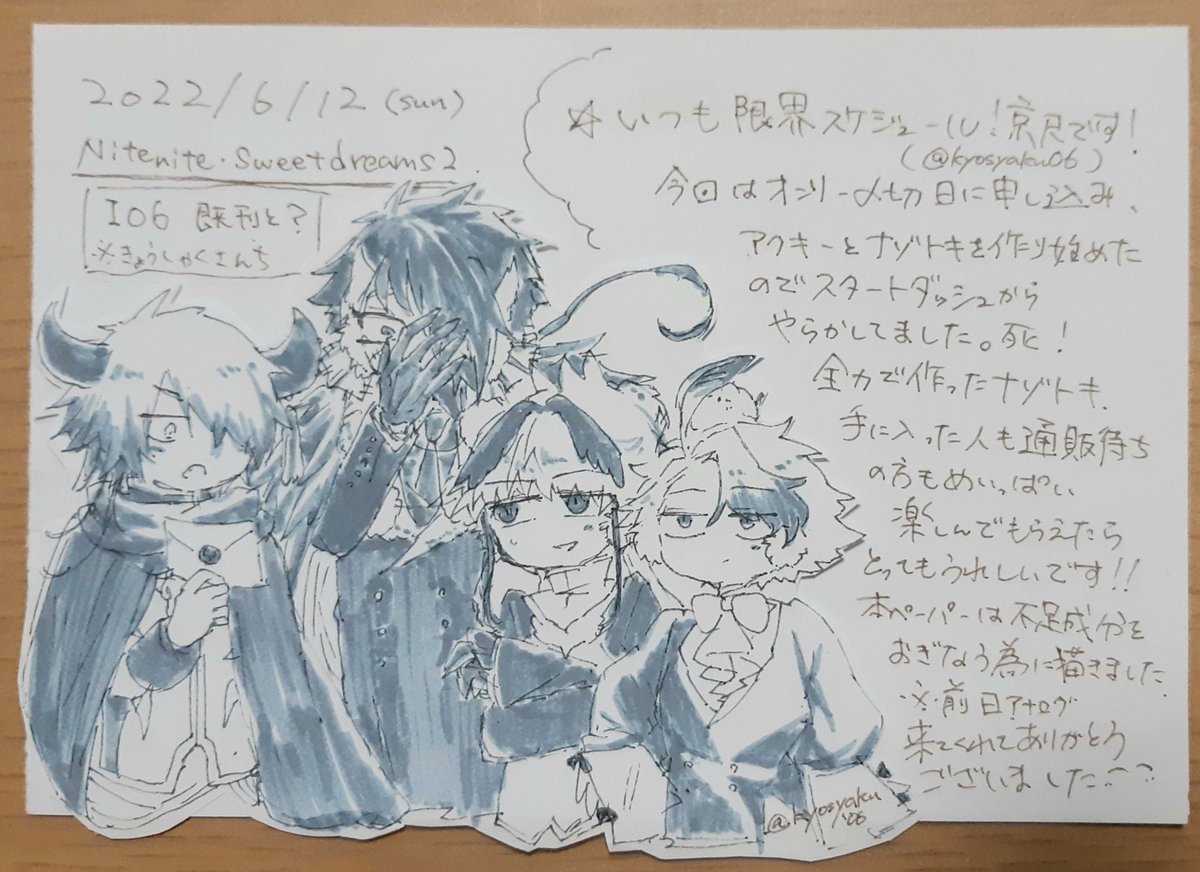 2022/6/12 (sun)
Nitenite・Sweetdreams2.
I06 既刊と?
※きょうしゃくさんち
☆いつも限界スケジュール!京尺です!
(@kyosyaku06)
今回はオンリー〆切日に申し込み、
アクキーとナゾトキを作り始めた
のでスタートダッシュから
やらかしてました。死!
全力で作ったナゾトキ、
手に入った人も通販待ち
の方もめいっぱい
楽しんでもらえたら
とってもうれしいです!!
本ペーパーは不足成分を
おぎなう為に描きました
※前日アナログ
来てくれてありがとう
ございました
@kyosyaku
'06